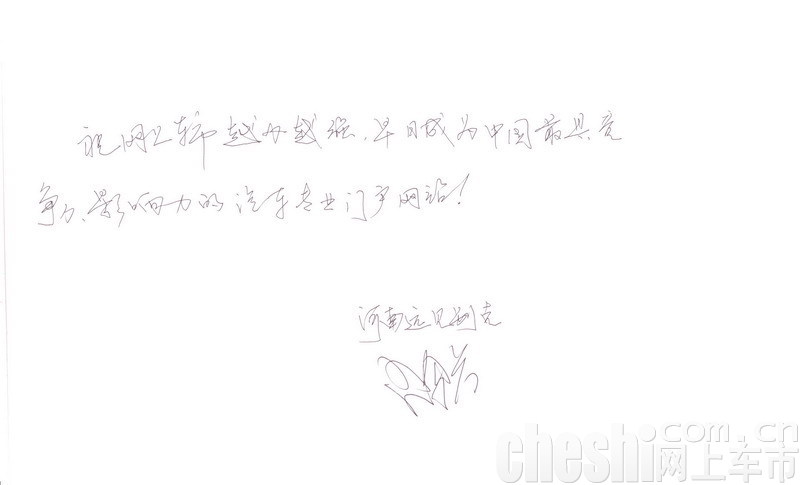 祝网上车市越办越强，早日成为中国最具竞
争力、影响力的汽车专业门户网站！
河南远见别克
cheshi.com.cn
网上车市